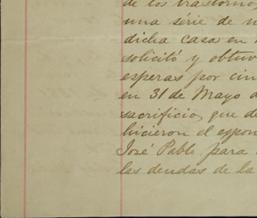 de los trastorno
una série de n
dicha casa en
solicitó y obtuv
esperas por cin
en 31 de Mayo d
sacrificio, que d
hicieron el espon
José Pablo, para
las deudas de la